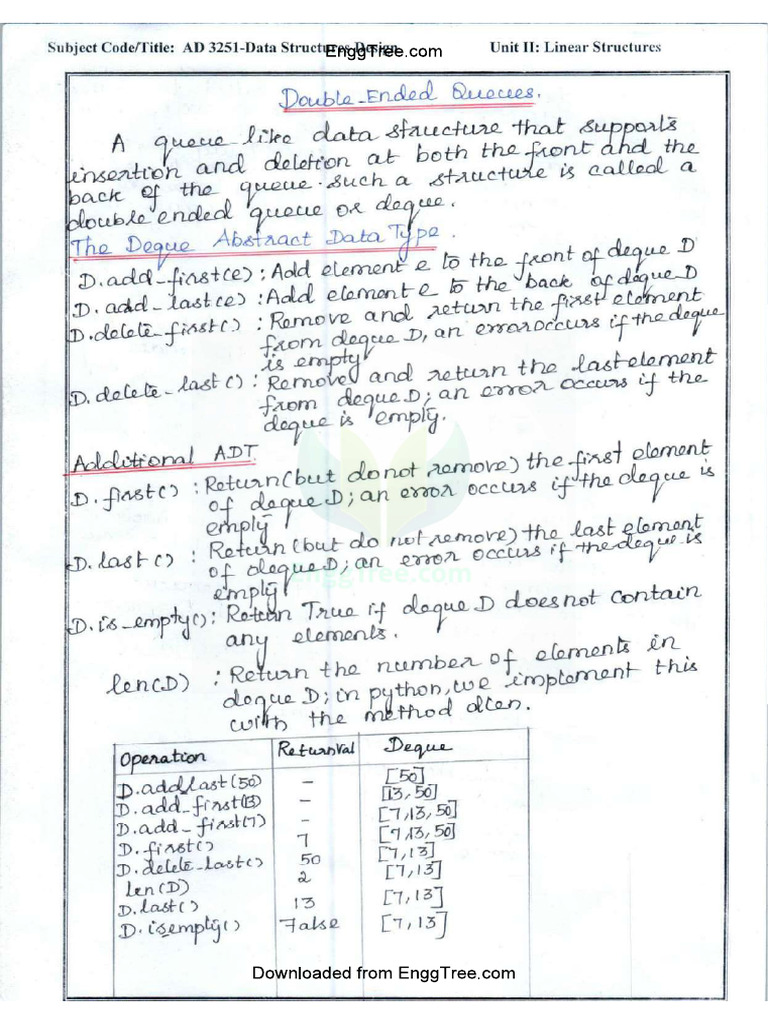 Subject Code/Title: AD 3251-Data Structures Design
EnggTree.com
Unit II: Linear Structures
Double-Ended Queues.
A queue like data structure that supports
insertion and deletion at both the front and the
back of the queue. such a structure is called a
double ended queue or deque.
The Deque Abstract Data Type.
D.add_first(e) : Add element e to the front of deque D
D. add_last(e) : Add element e to the back of deque D
D.delete_first() : Remove and return the first element
from deque D, an error occurs if the deque
is empty
D.delete_last() : Remove and return the last element
from deque D; an error occurs if the
deque is empty.
Additional ADT
D. first() : Return (but do not remove) the first element
of deque D; an error occurs if the deque is
empty
D. last() : Return (but do not remove) the last element
of deque D; an error occurs if the deque is
empty
EnggTree.com
D. is_empty() : Return True if deque D does not contain
any elements.
len(D) : Return the number of elements in
deque D; in python, we implement this
with the method dlen.
Operation ReturnVal Deque
D.add last(50) - [50]
D. add_first(13) - [13,50]
D. add_ first(7) - [7,13,50]
D. first() 7 [7,13,50]
D. delete_last() 50 [7,13]
len(D) 2 [7,13]
D.last() 13 [7,13]
D. isempty() False [7,13]
Downloaded from EnggTree.com